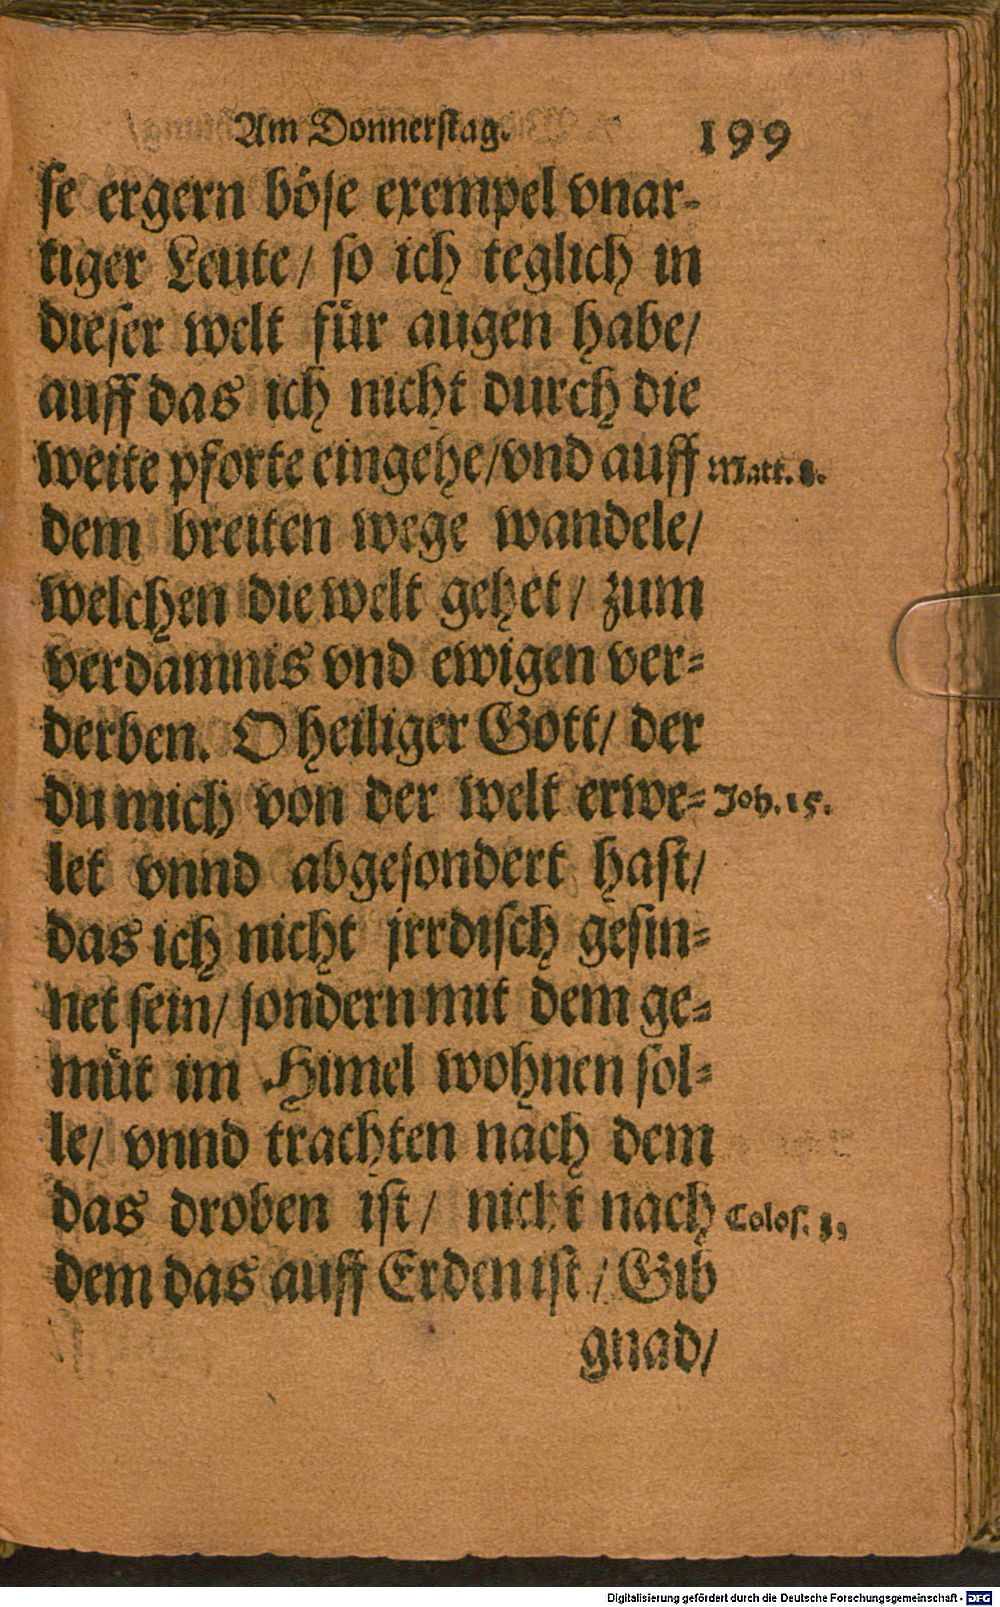 Am Donnerstag. 199
se ergern böse exempel vnar-
tiger Leute/ so ich teglich in
dieser welt für augen habe/
auff das ich nicht durch die
weite pforte eingehe/vnd auff Matt. 8.
dem breiten wege wandele/
welchen die welt gehet/ zum
verdamnis vnd ewigen ver-
derben. O heiliger Gott/ der
du mich von der welt erwe- Joh. 15.
let vnnd abgesondert hast/
das ich nicht jrrdisch gesin-
net sein/ sondern mit dem ge-
müt im Himel wohnen sol-
le/ vnnd trachten nach dem
das droben ist/ nicht nach Colos. 3,
dem das auff Erden ist/ Gib
gnad/
Digitalisierung gefördert durch die Deutsche Forschungsgemeinschaft - DFG